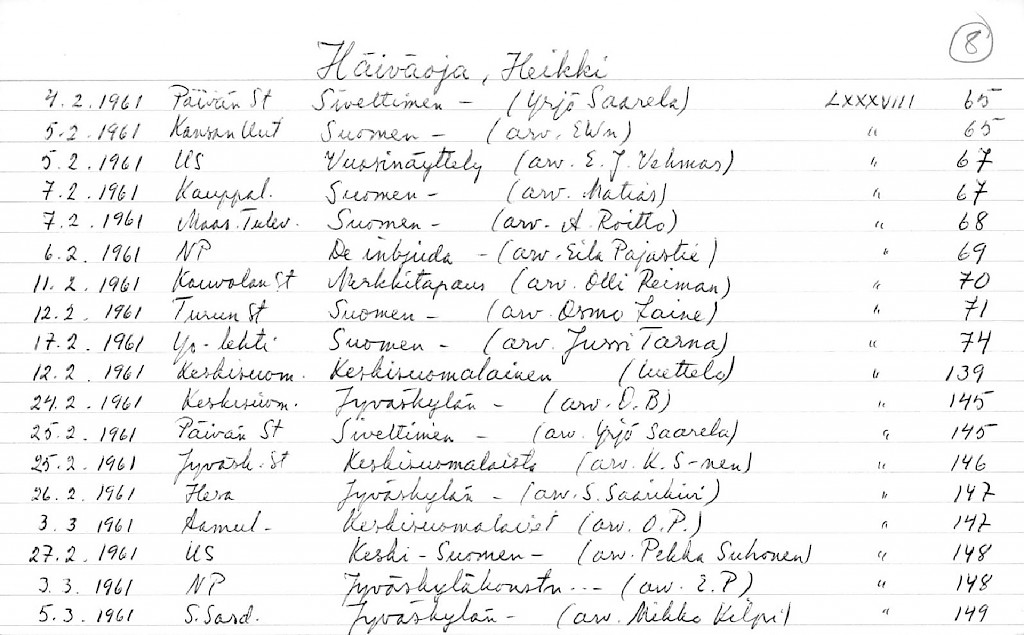 8
Häiväoja, Heikki
4.2.1961 Päivän St Siveltimen - (Yrjö Saarela) LXXXVIII 65
5.2.1961 Kansan Uut Suomen - (arv. EWn) " 65
5.2.1961 US Vuosinäyttely (arv. E.J. Vehmas) " 67
7.2.1961 Kauppal. Suomen - (arv. Matias) " 67
7.2.1961 Maas.Tulev. Suomen - (arv. A. Roitto) " 68
6.2.1961 NP De inbjuda - (arv. Eila Pajastie) " 69
11.2.1961 Kouvolan St Merkkitapaus (arv. Olli Reiman) " 70
12.2.1961 Turun St Suomen - (arv. Osmo Laine) " 71
17.2.1961 Yo-lehti Suomen - (arv. Jussi Tarna) " 74
12.2.1961 Keskisuom. Keskisuomalainen (luettelo) " 139
24.2.1961 Keskisuom. Jyväskylän - (arv. O.B) " 145
25.2.1961 Päivän St Siveltimen - (arv. Yrjö Saarela) " 145
25.2.1961 Jyväsk. St Keskisuomalaista (arv. K. S-nen) " 146
26.2.1961 Jyväskylän - (arv. S. Saarikivi) " 147
3.3 1961 Aamul - Keskisuomalaiset (arv. O.P.) " 147
27.2.1961 US Keski-Suomen - (arv. Pekka Suhonen) " 148
3.3.1961 NP Jyväskyläkonstn... (arv. E.P) " 148
5.3.1961 S.Sosd. Jyväskylän - (arv. Mikko Kilpi) " 149